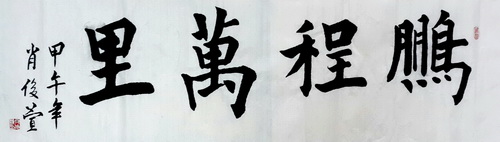 鵬程萬里
甲午年
肖俊萱